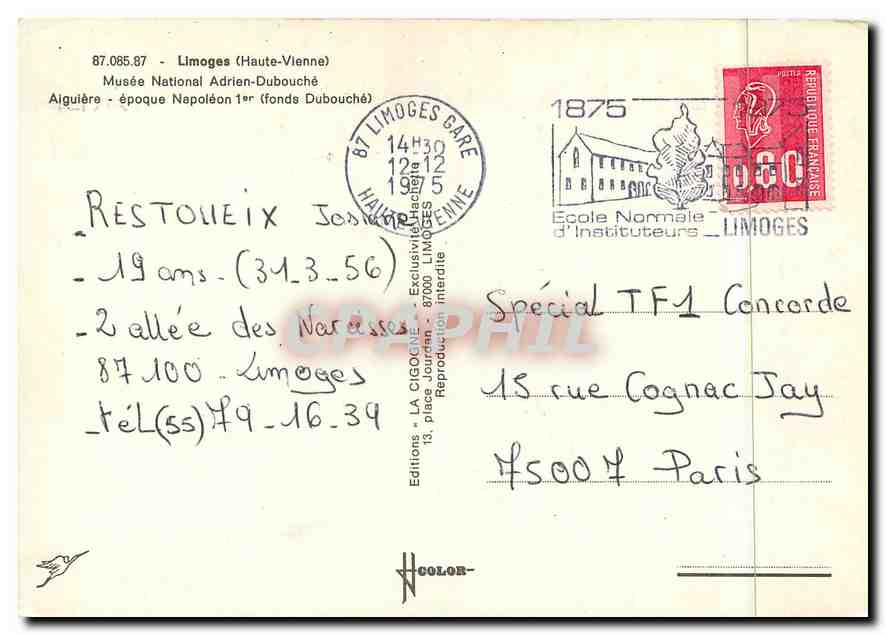 87.085.87 - Limoges (Haute-Vienne)
Musée National Adrien-Dubouché
Aiguière - époque Napoléon 1er (fonds Dubouché)
87 LIMOGES GARE
14H30
12-12
1975
HAUTE VIENNE
1875
1975
Ecole Normale
d'Instituteurs
LIMOGES
POSTES
REPUBLIQUE FRANÇAISE
0.80
- RESTOUEIX Josiane
- 19 ans - (31-3-56)
- 2 allée des Narcisses
87100 - Limoges
- tél (55) 79-16-39
Editions « LA CIGOGNE » - Exclusivité Hachette
13, place Jourdan - 87000 LIMOGES
Reproduction interdite
CPAPHIL
Spécial TF1 Concorde
15 rue Cognac Jay
75007 Paris
COLOR